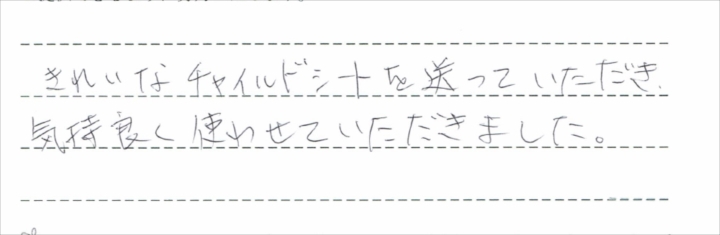 きれいなチャイルドシートを送っていただき、
気持良く使わせていただきました。